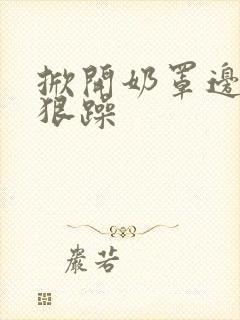 掀開奶罩邊
狠躁
嚴苦